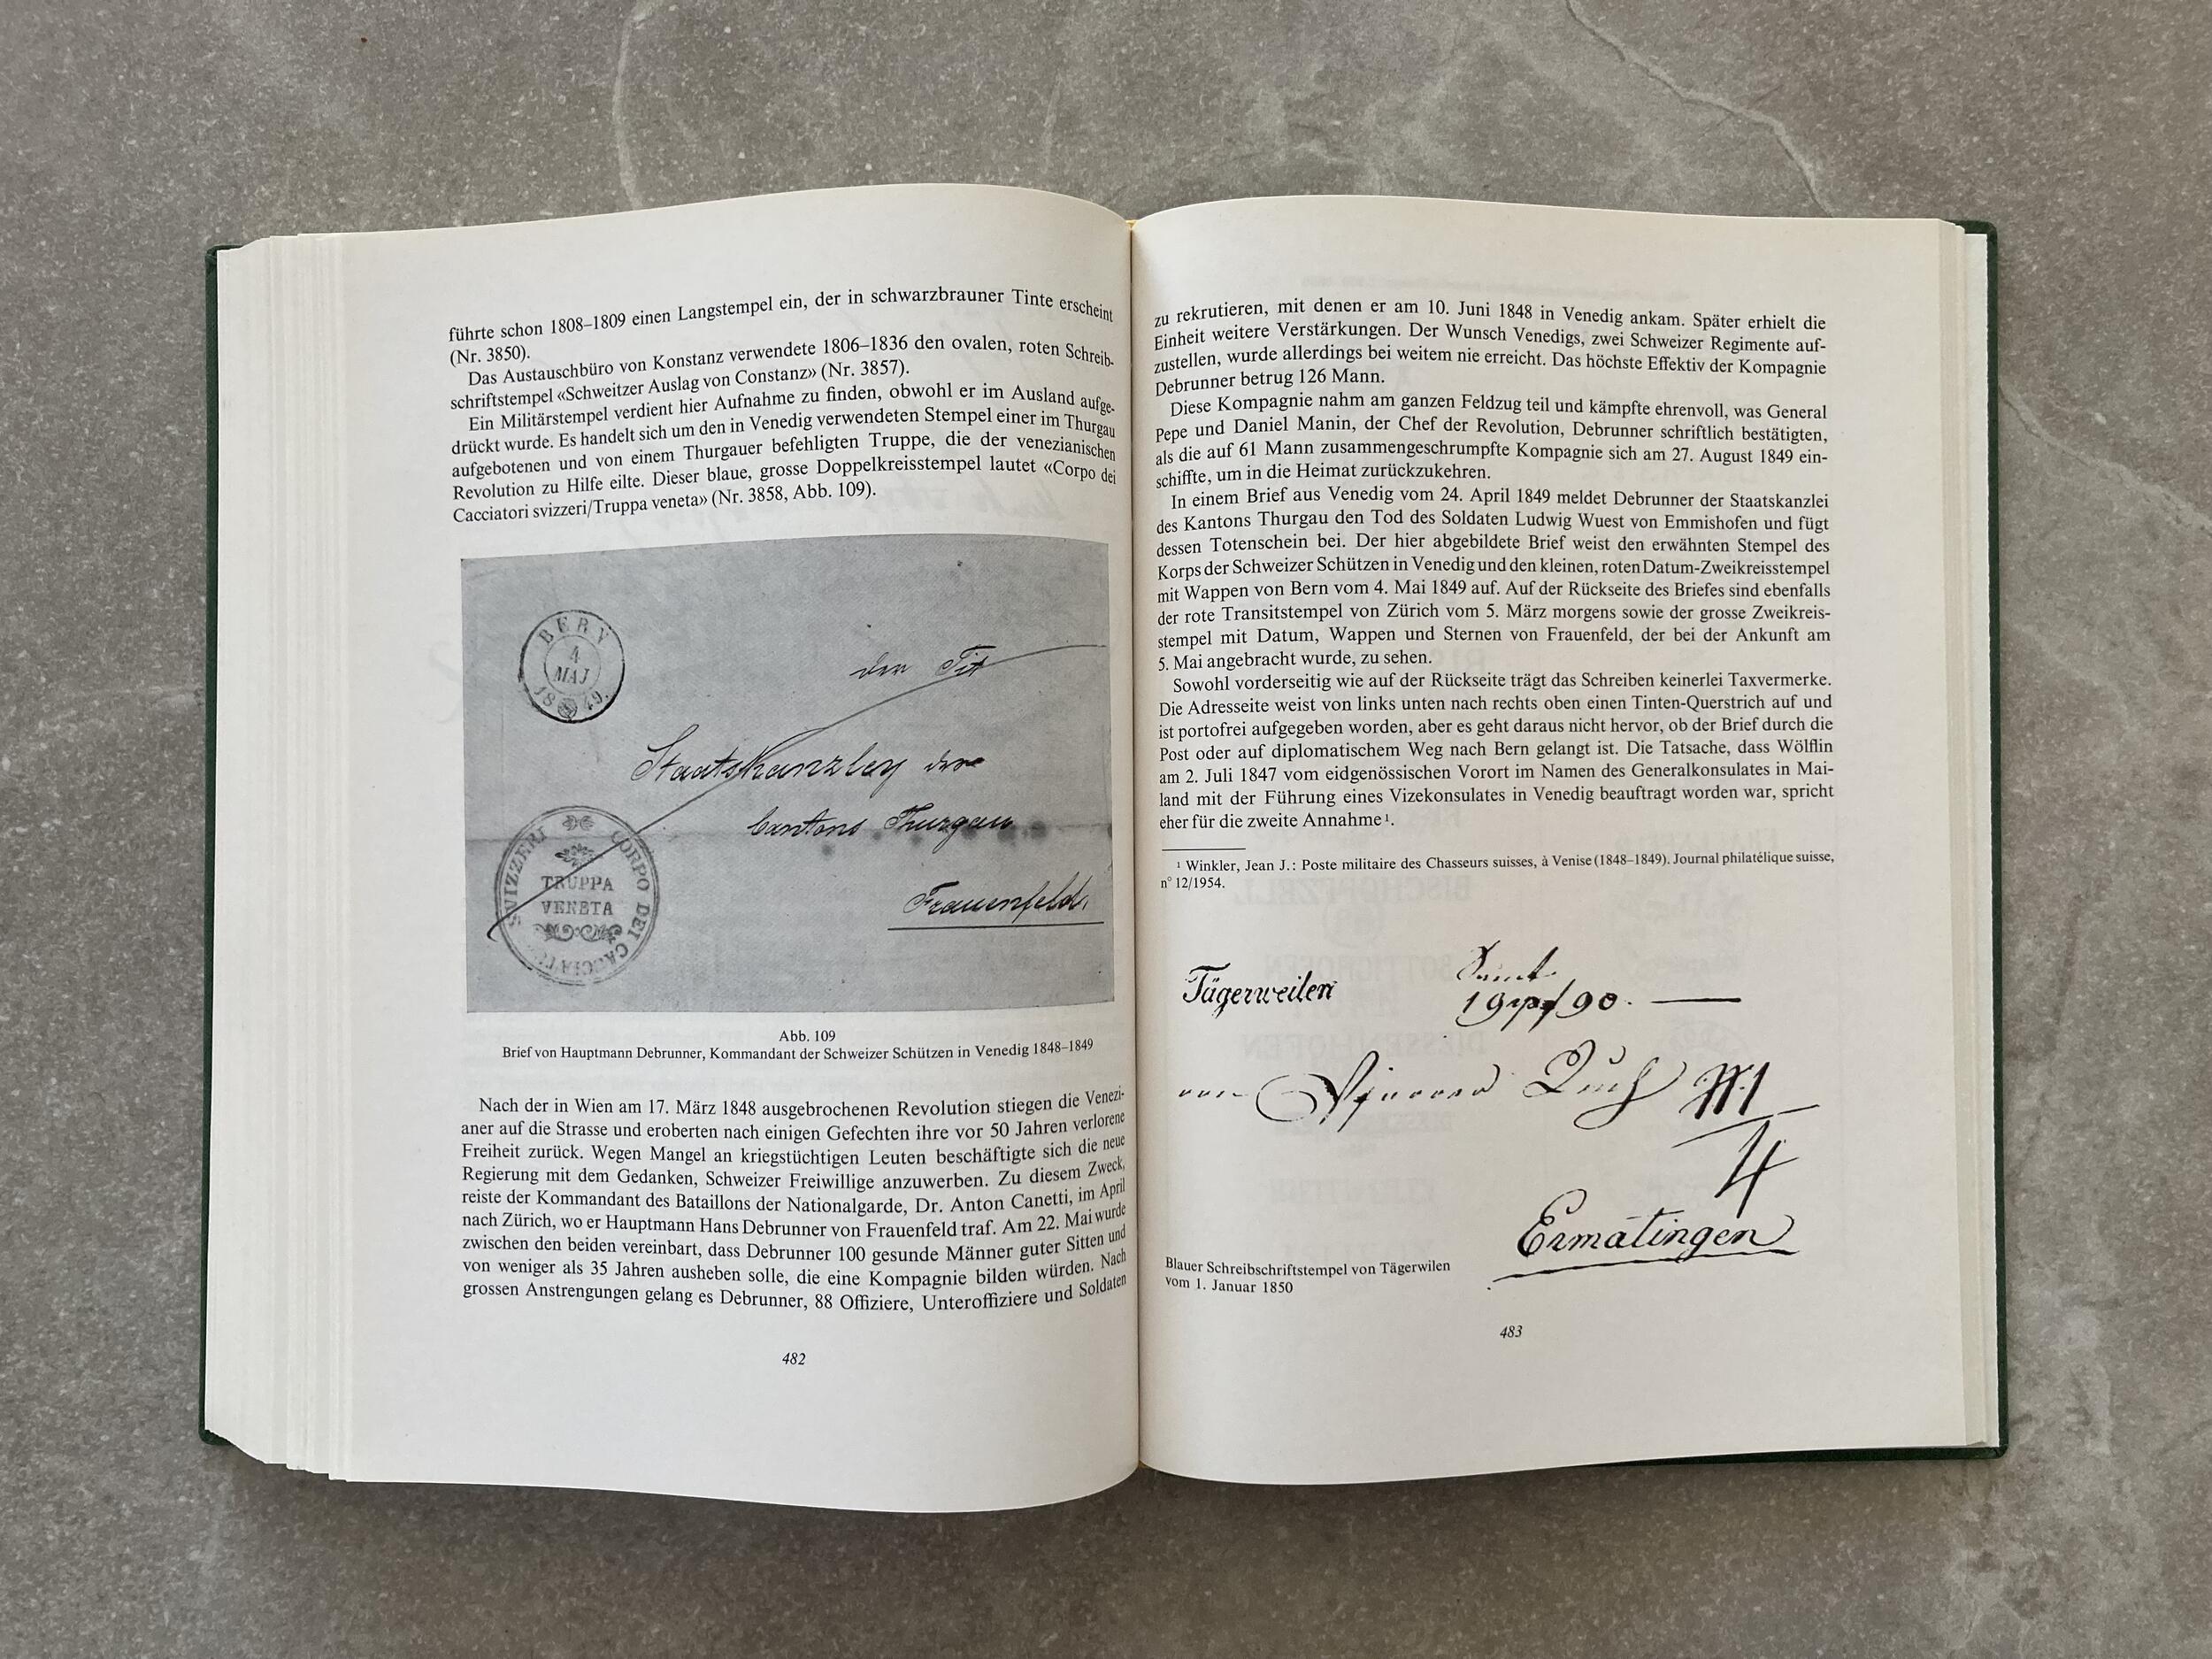 führte schon 1808–1809 einen Langstempel ein, der in schwarzbrauner Tinte erscheint
(Nr. 3850).
Das Austauschbüro von Konstanz verwendete 1806–1836 den ovalen, roten Schreib-
schriftstempel «Schweitzer Auslag von Constanz» (Nr. 3857).
Ein Militärstempel verdient hier Aufnahme zu finden, obwohl er im Ausland aufge-
drückt wurde. Es handelt sich um den in Venedig verwendeten Stempel einer im Thurgau
aufgebotenen und von einem Thurgauer befehligten Truppe, die der venezianischen
Revolution zu Hilfe eilte. Dieser blaue, grosse Doppelkreisstempel lautet «Corpo dei
Cacciatori svizzeri/Truppa veneta» (Nr. 3858, Abb. 109).
BERN
4
MAJ
1849
der Tit
Staatskanzley des
Cantons Thurgau
Frauenfeld.
SVIZZERI CORPO DEI
TRUPPA
VENETA
Abb. 109
Brief von Hauptmann Debrunner, Kommandant der Schweizer Schützen in Venedig 1848–1849
Nach der in Wien am 17. März 1848 ausgebrochenen Revolution stiegen die Venezi-
aner auf die Strasse und eroberten nach einigen Gefechten ihre vor 50 Jahren verlorene
Freiheit zurück. Wegen Mangel an kriegstüchtigen Leuten beschäftigte sich die neue
Regierung mit dem Gedanken, Schweizer Freiwillige anzuwerben. Zu diesem Zweck,
reiste der Kommandant des Bataillons der Nationalgarde, Dr. Anton Canetti, im April
nach Zürich, wo er Hauptmann Hans Debrunner von Frauenfeld traf. Am 22. Mai wurde
zwischen den beiden vereinbart, dass Debrunner 100 gesunde Männer guter Sitten und
von weniger als 35 Jahren ausheben solle, die eine Kompagnie bilden würden. Nach
grossen Anstrengungen gelang es Debrunner, 88 Offiziere, Unteroffiziere und Soldaten
482
zu rekrutieren, mit denen er am 10. Juni 1848 in Venedig ankam. Später erhielt die
Einheit weitere Verstärkungen. Der Wunsch Venedigs, zwei Schweizer Regimente auf-
zustellen, wurde allerdings bei weitem nie erreicht. Das höchste Effektiv der Kompagnie
Debrunner betrug 126 Mann.
Diese Kompagnie nahm am ganzen Feldzug teil und kämpfte ehrenvoll, was General
Pepe und Daniel Manin, der Chef der Revolution, Debrunner schriftlich bestätigten,
als die auf 61 Mann zusammengeschrumpfte Kompagnie sich am 27. August 1849 ein-
schiffte, um in die Heimat zurückzukehren.
In einem Brief aus Venedig vom 24. April 1849 meldet Debrunner der Staatskanzlei
des Kantons Thurgau den Tod des Soldaten Ludwig Wuest von Emmishofen und fügt
dessen Totenschein bei. Der hier abgebildete Brief weist den erwähnten Stempel des
Korps der Schweizer Schützen in Venedig und den kleinen, roten Datum-Zweikreisstempel
mit Wappen von Bern vom 4. Mai 1849 auf. Auf der Rückseite des Briefes sind ebenfalls
der rote Transitstempel von Zürich vom 5. März morgens sowie der grosse Zweikreis-
stempel mit Datum, Wappen und Sternen von Frauenfeld, der bei der Ankunft am
5. Mai angebracht wurde, zu sehen.
Sowohl vorderseitig wie auf der Rückseite trägt das Schreiben keinerlei Taxvermerke.
Die Adresseite weist von links unten nach rechts oben einen Tinten-Querstrich auf und
ist portofrei aufgegeben worden, aber es geht daraus nicht hervor, ob der Brief durch die
Post oder auf diplomatischem Weg nach Bern gelangt ist. Die Tatsache, dass Wölflin
am 2. Juli 1847 vom eidgenössischen Vorort im Namen des Generalkonsulates in Mai-
land mit der Führung eines Vizekonsulates in Venedig beauftragt worden war, spricht
eher für die zweite Annahme¹.
¹ Winkler, Jean J.: Poste militaire des Chasseurs suisses, à Venise (1848–1849). Journal philatélique suisse,
n° 12/1954.
Tägerweilen
4
Ermatingen
Blauer Schreibschriftstempel von Tägerwilen
vom 1. Januar 1850
483